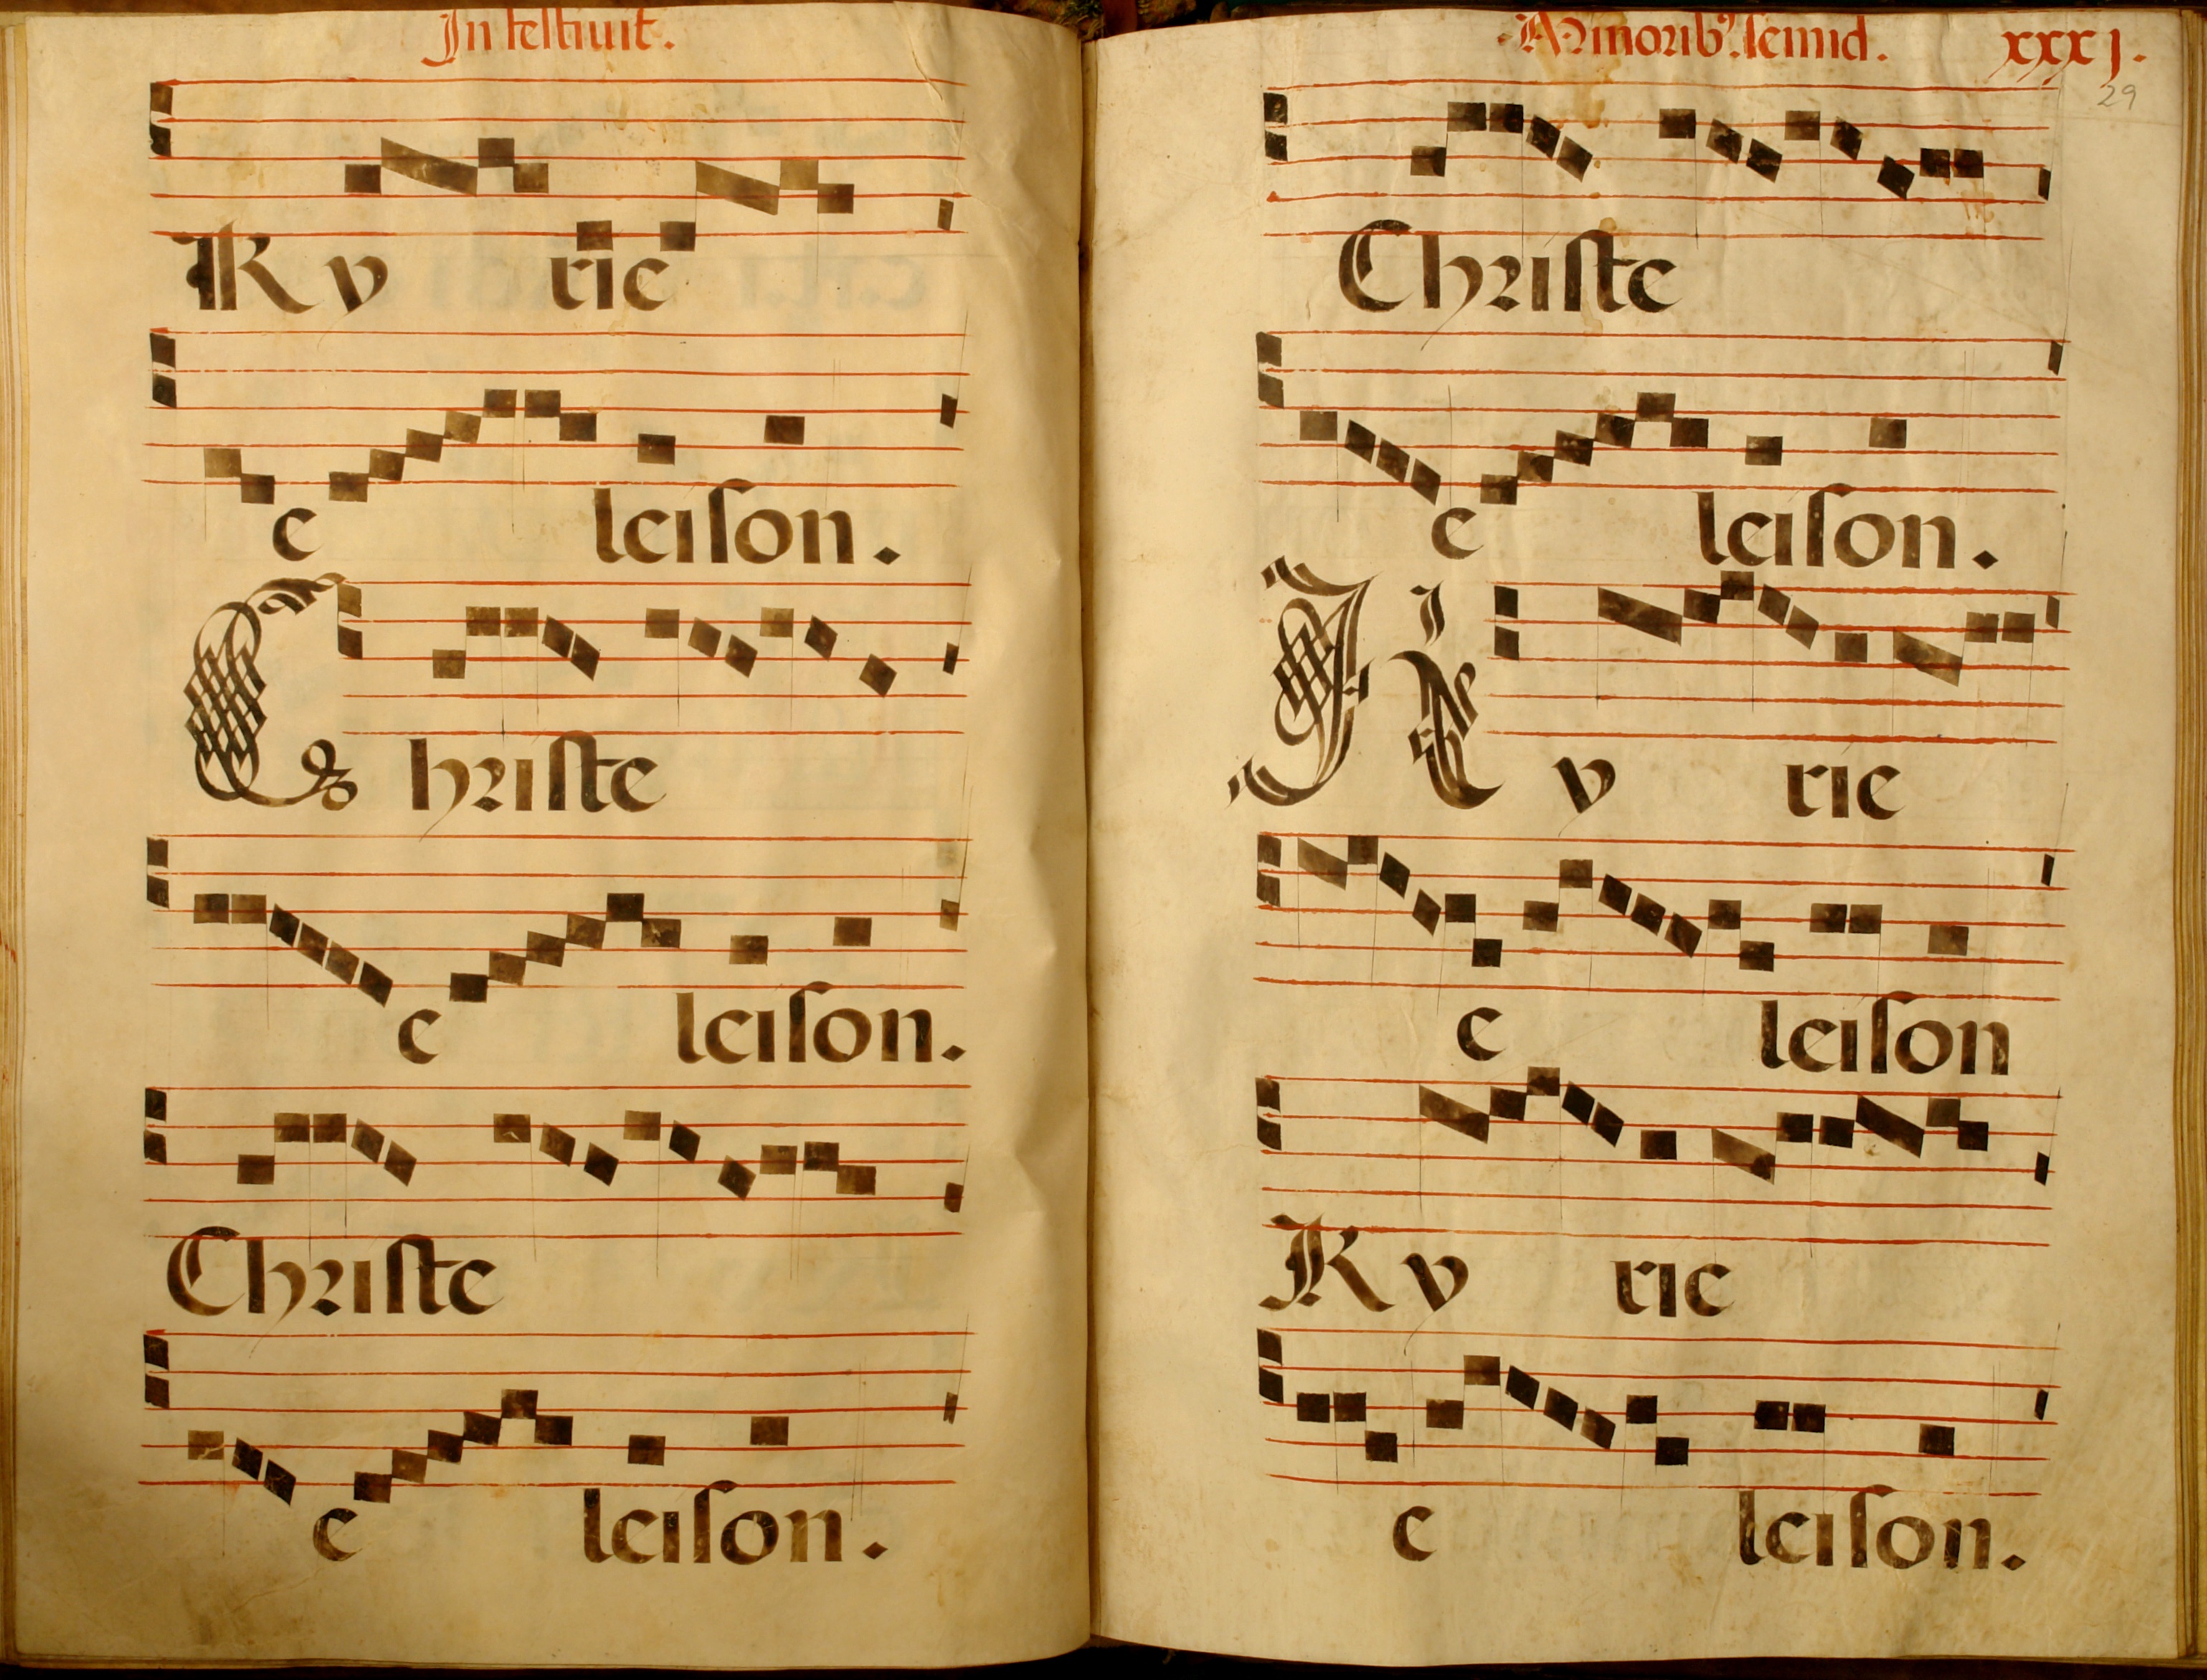 In festiuit.
Ky rie
e leison.
Christe
e leison.
Christe
e leison.
Minorib9. semid. xxxj.
29
Christe
e leison.
Ky rie
e leison
Ky rie
e leison.